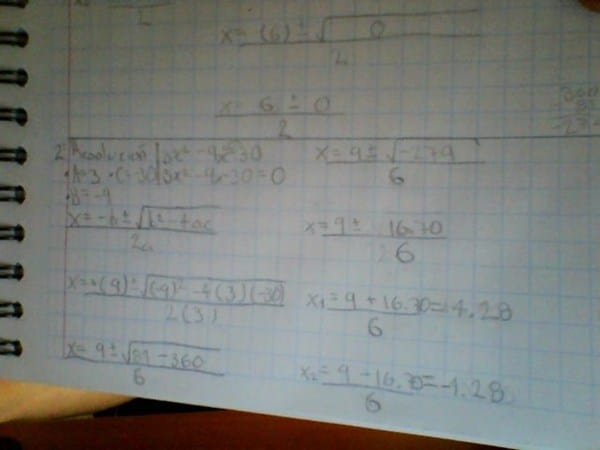 x= (6) ± √0
2
x= 6 ± 0
2
2 Resolución 3x² - 9x = 30
• A=3 • C=-30 3x² - 9x - 30 = 0
• B= -9
x= -b ± √b² - 4ac
2a
x= +(9) ± √(-9)² - 4(3)(-30)
2(3)
x= 9 ± √81 - 360
6
x= 9 ± √-279
6
x= 9 ± 16.70
6
x₁ = 9 + 16.70 = 4.28
6
x₂ = 9 - 16.70 = -1.28
6